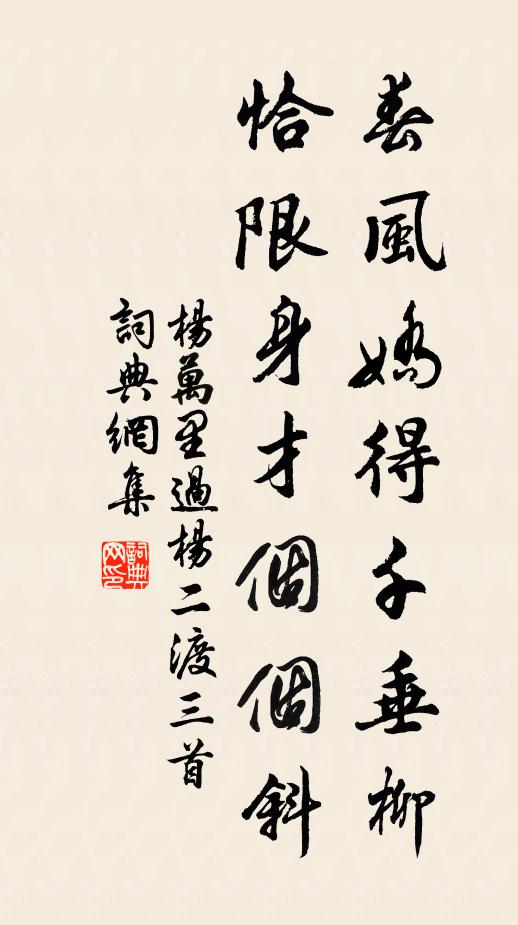 春風嬌得千垂柳
恰限身才個個斜
楊萬里過楊二渡三首
詞典網集
詞典
网印